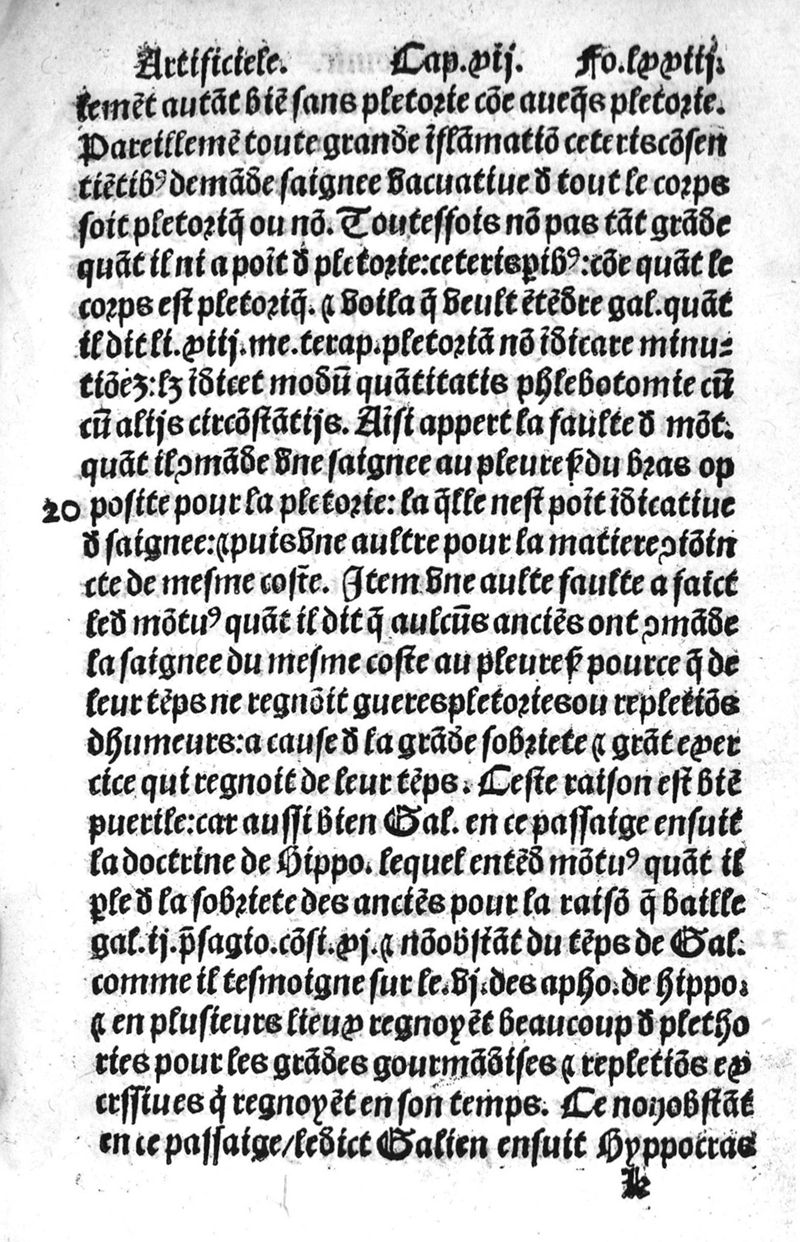 Artificiele. Cap.xij. Fo.lxxiij.
lemēt autāt biē sans pletorie cōe aueq̄s pletorie.
Pareillemē toute grande īflāmatiō ceteris cōsen
tiētibꝰ demāde saignee vacuatiue d̄ tout le corps
soit pletoriq̄ ou nō. Toutesfois nō pas tāt grāde
quāt il ni a poīt d̄ pletorie:ceteris ꝑibꝰ:cōe quāt le
corps est pletoriq̄. ⁊ voila q̄ veult ētēdre gal.quāt
il dit li.xiij.me.terap.pletoriā nō īdicare minu⸗
tiōeꝫ:lꝫ īdicet modū quātitatis phlebotomie cū
cū alijs circōstātijs. Aīsi appert la faulte d̄ mōt.
quāt il ꝯmāde vne saignee au pleuref du bras op
20 posite pour la pletorie: la q̄lle nest poīt īdicatiue
d̄ saignee:⁊puis vne aultre pour la matiere ꝯiōin
cte de mesme coste. Item vne aulte faulte a faict
led̄ mōtuꝰ quāt il dit q̄ aulcūs anciēs ont ꝯmāde
la saignee du mesme coste au pleuref pource q̄ de
leur tēps ne regnōit gueres pletories ou repletiōs
dhumeurs:a cause d̄ la grāde sobriete ⁊ grāt exer
cice qui regnoit de leur tēps. Ceste raison est biē
puerile:car aussi bien Gal. en ce passaige ensuit
la doctrine de Hippo. lequel entēd mōtuꝰ quāt il
ꝑle d̄ la sobriete des anciēs pour la raisō q̄ baille
gal.ij.p̄sagio.cōsi.xj.⁊ nōobstāt du tēps de Gal.
comme il tesmoigne sur le.vj.des apho.de hippo.
⁊ en plusieurs lieux regnoyēt beaucoup d̄ pletho
ries pour les grādes gourmādises ⁊ repletiōs ex
cessiues q̄ regnoyēt en son temps. Ce nonobstāt
en ce passaige/ledict Galien ensuit Hyppocras
k